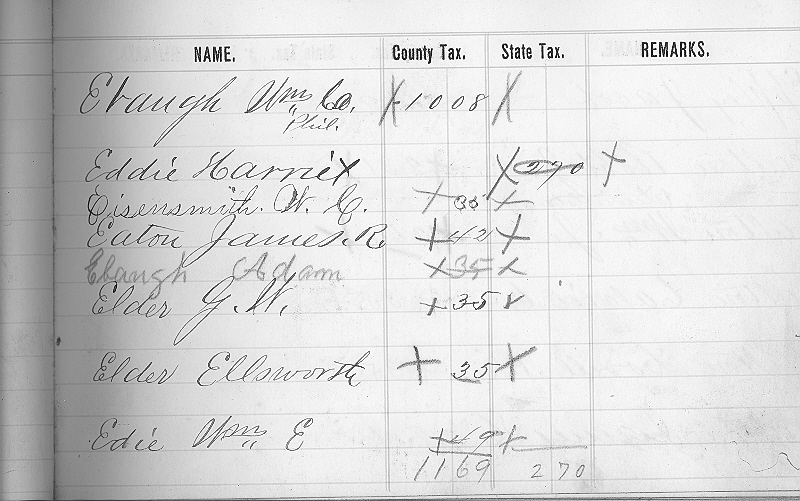 NAME. County Tax. State Tax. REMARKS.
Ebaugh Wm Co. X 10 08 X
Phil.
Eddie Harriet X 2 70 X
Eisensmith. W. C. X 35 X
Eaton James. R. X 42 X
Ebaugh Adam X 35 X
Elder G. W. X 35 X
Elder Ellsworth X 35 X
Edie Wm E X 49 X
11 69 2 70